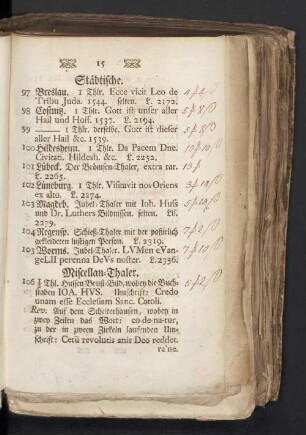 15
Städtische.
97 Breslau. 1 Thlr. Ecce vicit Leo de
Tribu Juda. 1544. selten. L. 2172.
98 Costnitz. 1 Thlr. Gott ist unser aller
Hail und Hoff. 1537. L. 2194.
99 ——— 1 Thlr. derselbe. Gott ist dieser
aller Hail &c. 1539.
100 Hildesheim. 1 Thlr. Da Pacem Dne.
Civitati. Hildesh. &c. L. 2252.
101 Lübeck. Der Brömsen-Thaler, extra rar.
L. 2265.
102 Lüneburg. 1 Thlr. Visitavit nos Oriens
ex alto. L. 2274.
103 Magdeb. Jubel-Thaler mit Joh. Huss
und Dr. Luthers Bildnissen. selten. Lil.
2279.
104 Regensp. Schieß-Thaler mit der possirlich
gekleideten lustigen Person. L. 2319.
105 Worms. Jubel-Thaler. LVMen eVan-
geLII perenna DeVs noster. L. 2336.
Miscellan-Thaler.
106 Thl. Hussen Brust-Bild, wobey die Buch-
staben IOA. HVS. Umschrift: Credo
unam esse Ecclesiam Sanc. Catoli.
Rev. Auf dem Scheiterhauffen, wobey in
zwey Zeilen das Wort: co-de-na-tur,
zu der in zweyen Zirkeln laufenden Um-
schrift: Cetū revolutis anis Deo reddet.
ra'ne.